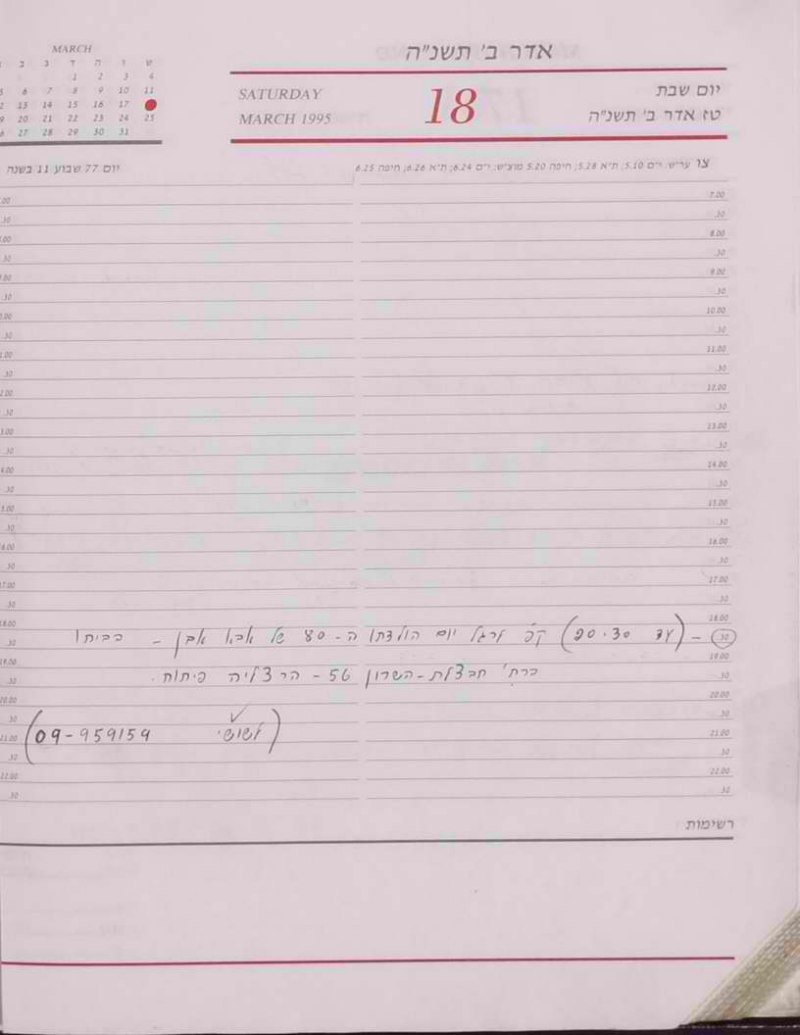 אדר ב' תשנ"ה
MARCH
ש ו ה ד ג ב
1 2 3 4
5 6 7 8 9 10 11
13 14 15 16 17
19 20 21 22 23 24 25
27 28 29 30 31
SATURDAY
MARCH 1995
18
יום שבת
טז אדר ב' תשנ"ה
יום 77 שבוע 11 בשנה
צו ער"ש: י"ם 5.10; ת"א 5.28; חיפה 5.20 מוצ"ש: י"ם 6.24; ת"א 6.26; חיפה 6.25
7.00
.30
8.00
.30
9.00
.30
10.00
.30
11.00
.30
12.00
.30
13.00
.30
14.00
.30
15.00
.30
16.00
.30
17.00
.30
18.00
.30 – (עד 20.30) קפ' לרגל יום הולדתו ה-80 של אבא אבן – בביתו
19.00
.30 ברח' חבצלת-השרון 56 – הרצליה פיתוח.
20.00
.30
(שושי 09-959159)
21.00
.30
22.00
.30
רשימות